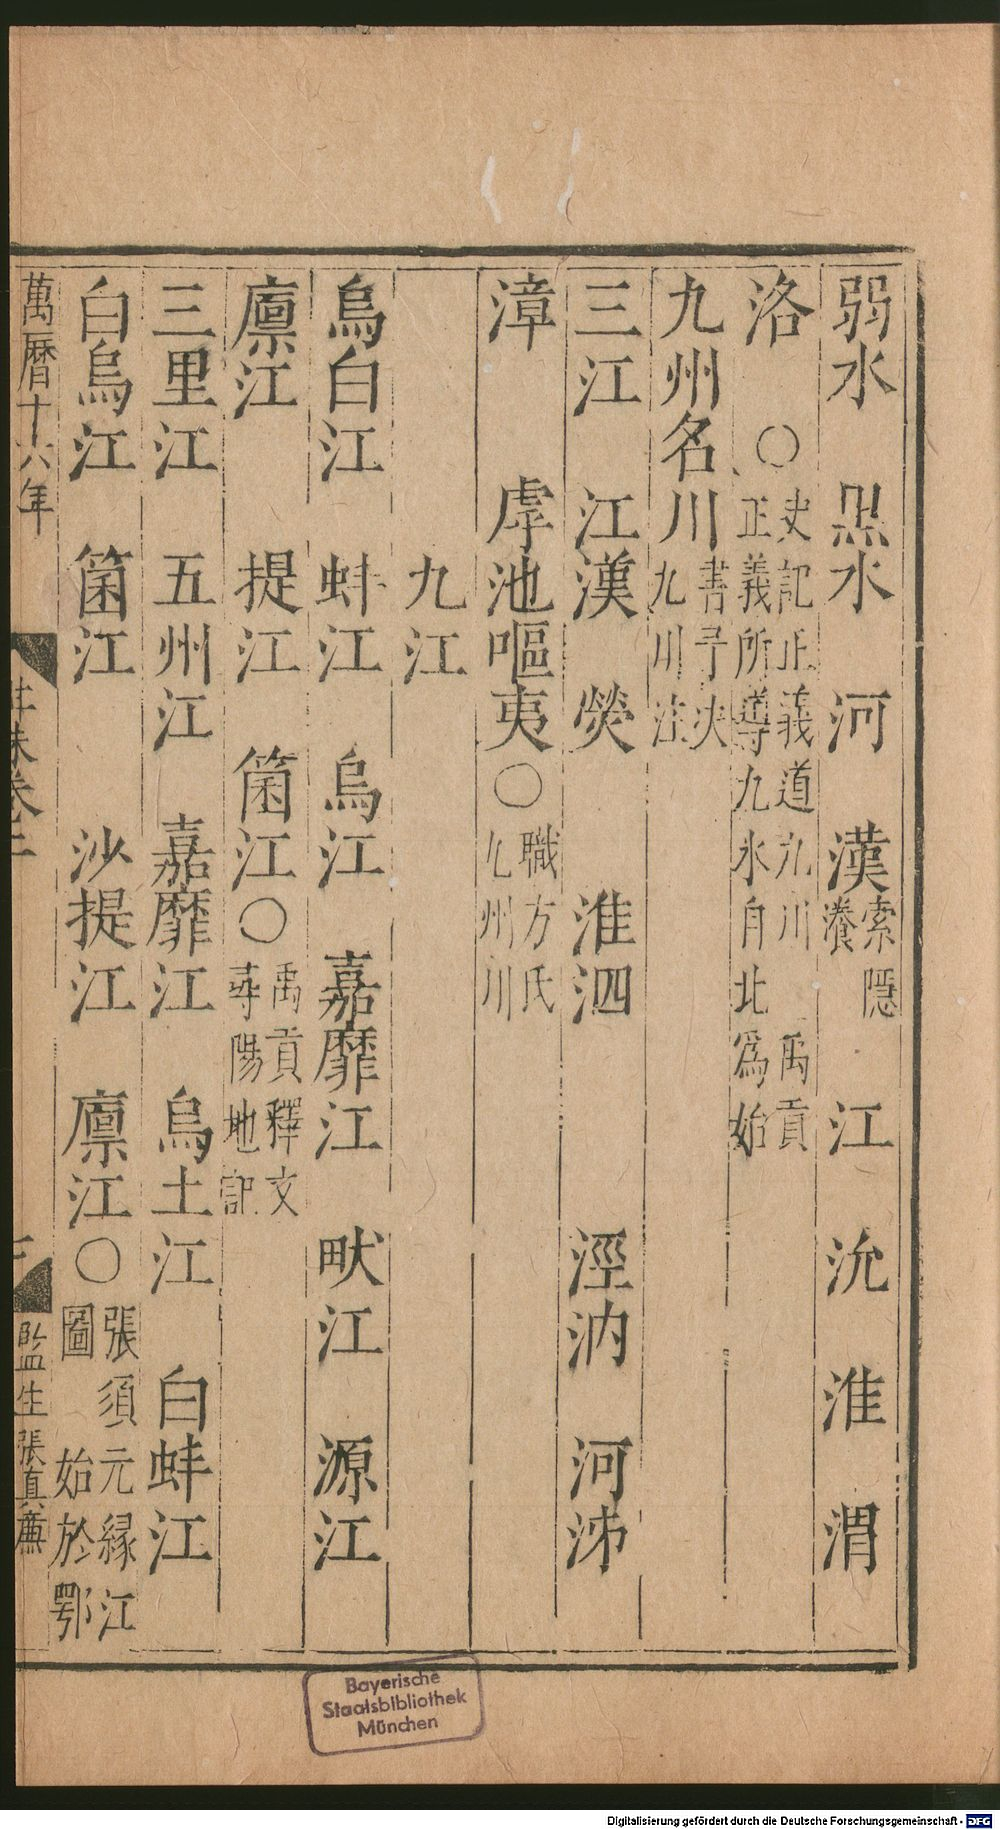 弱水 黑水 河 漢 索隱 瀁 江 沇 淮 渭
洛 ○ 史記正義道九川 禹貢
正義所導九水自北為始
九州名川 書予决
九川注
三江 江漢 熒 淮泗 涇汭 河泲
漳 虖池嘔夷 ○ 職方氏
九州川
九江
烏白江 蚌江 烏江 嘉靡江 畎江 源江
廩江 提江 箘江 ○ 禹貢釋文
尋陽地記
三里江 五州江 嘉靡江 烏土江 白蚌江
白烏江 箘江 沙提江 廩江 ○ 張須元縁江
圖 始於鄂
萬曆十六年 卷二 監生張真薦
Bayerische
Staatsbibliothek
München
Digitalisierung gefördert durch die Deutsche Forschungsgemeinschaft - DFG